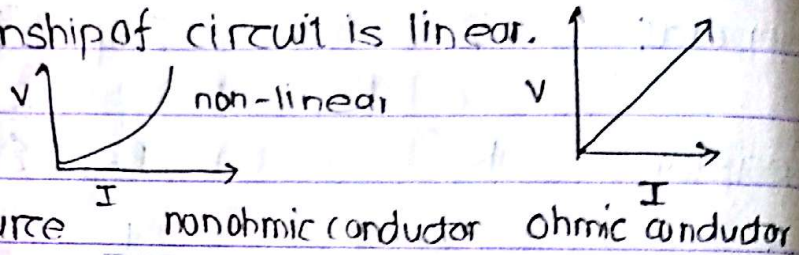 nship of circuit is linear.
V non-linear V
I I
urce nonohmic conductor ohmic conductor